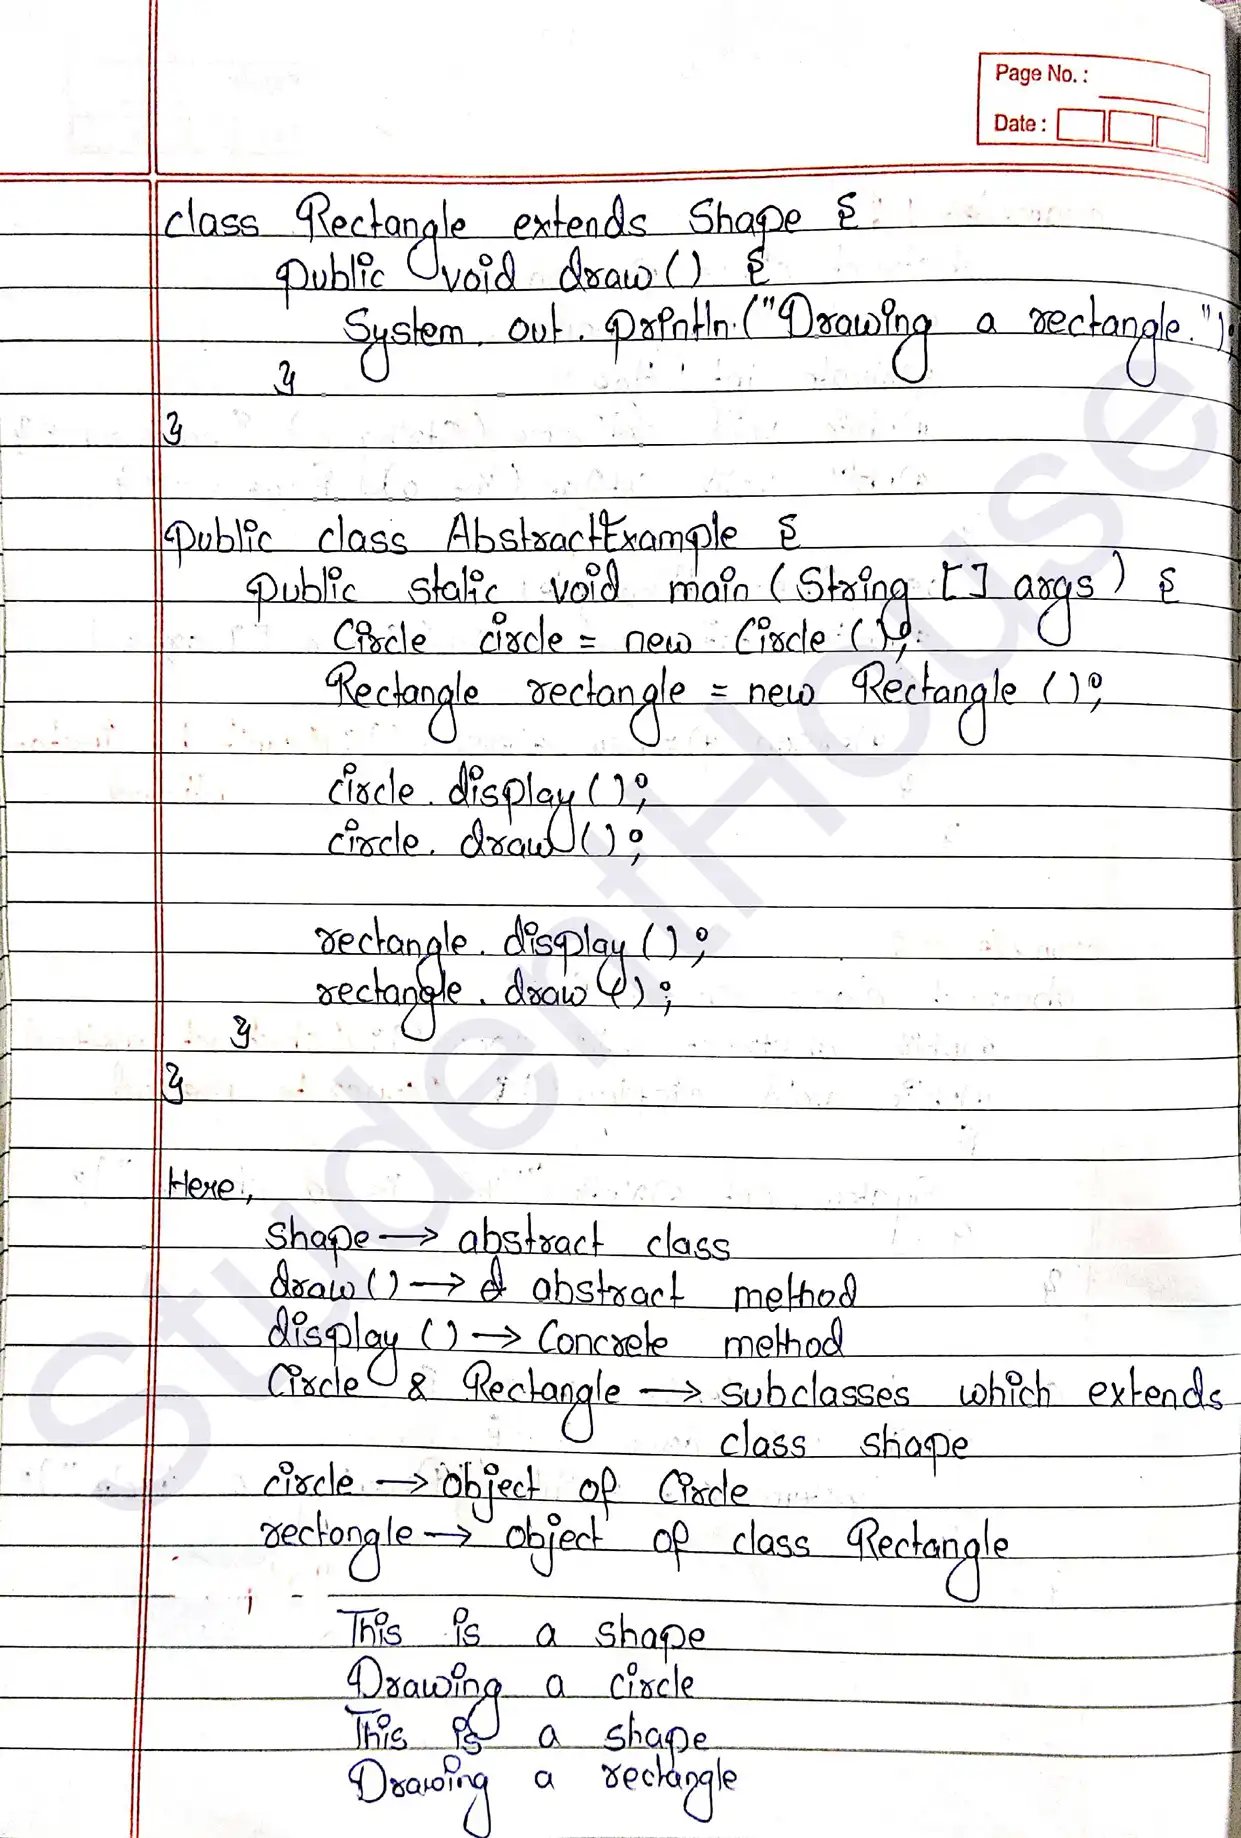 Page No. :
Date :
class Rectangle extends Shape {
public void draw() {
System. out. println.("Drawing a rectangle.");
}
}
public class AbstractExample {
public static void main (String [] args) {
Circle circle = new Circle ();
Rectangle rectangle = new Rectangle ();
circle. display ();
circle. draw ();
rectangle. display ();
rectangle. draw ();
}
}
Here,
shape → abstract class
draw () → abstract method
display () → Concrete method
Circle & Rectangle → subclasses which extends
class shape
circle → object of Circle
rectongle → object of class Rectangle
This is a shape
Drawing a circle
This is a shape
Drawing a rectangle
StudentHouse